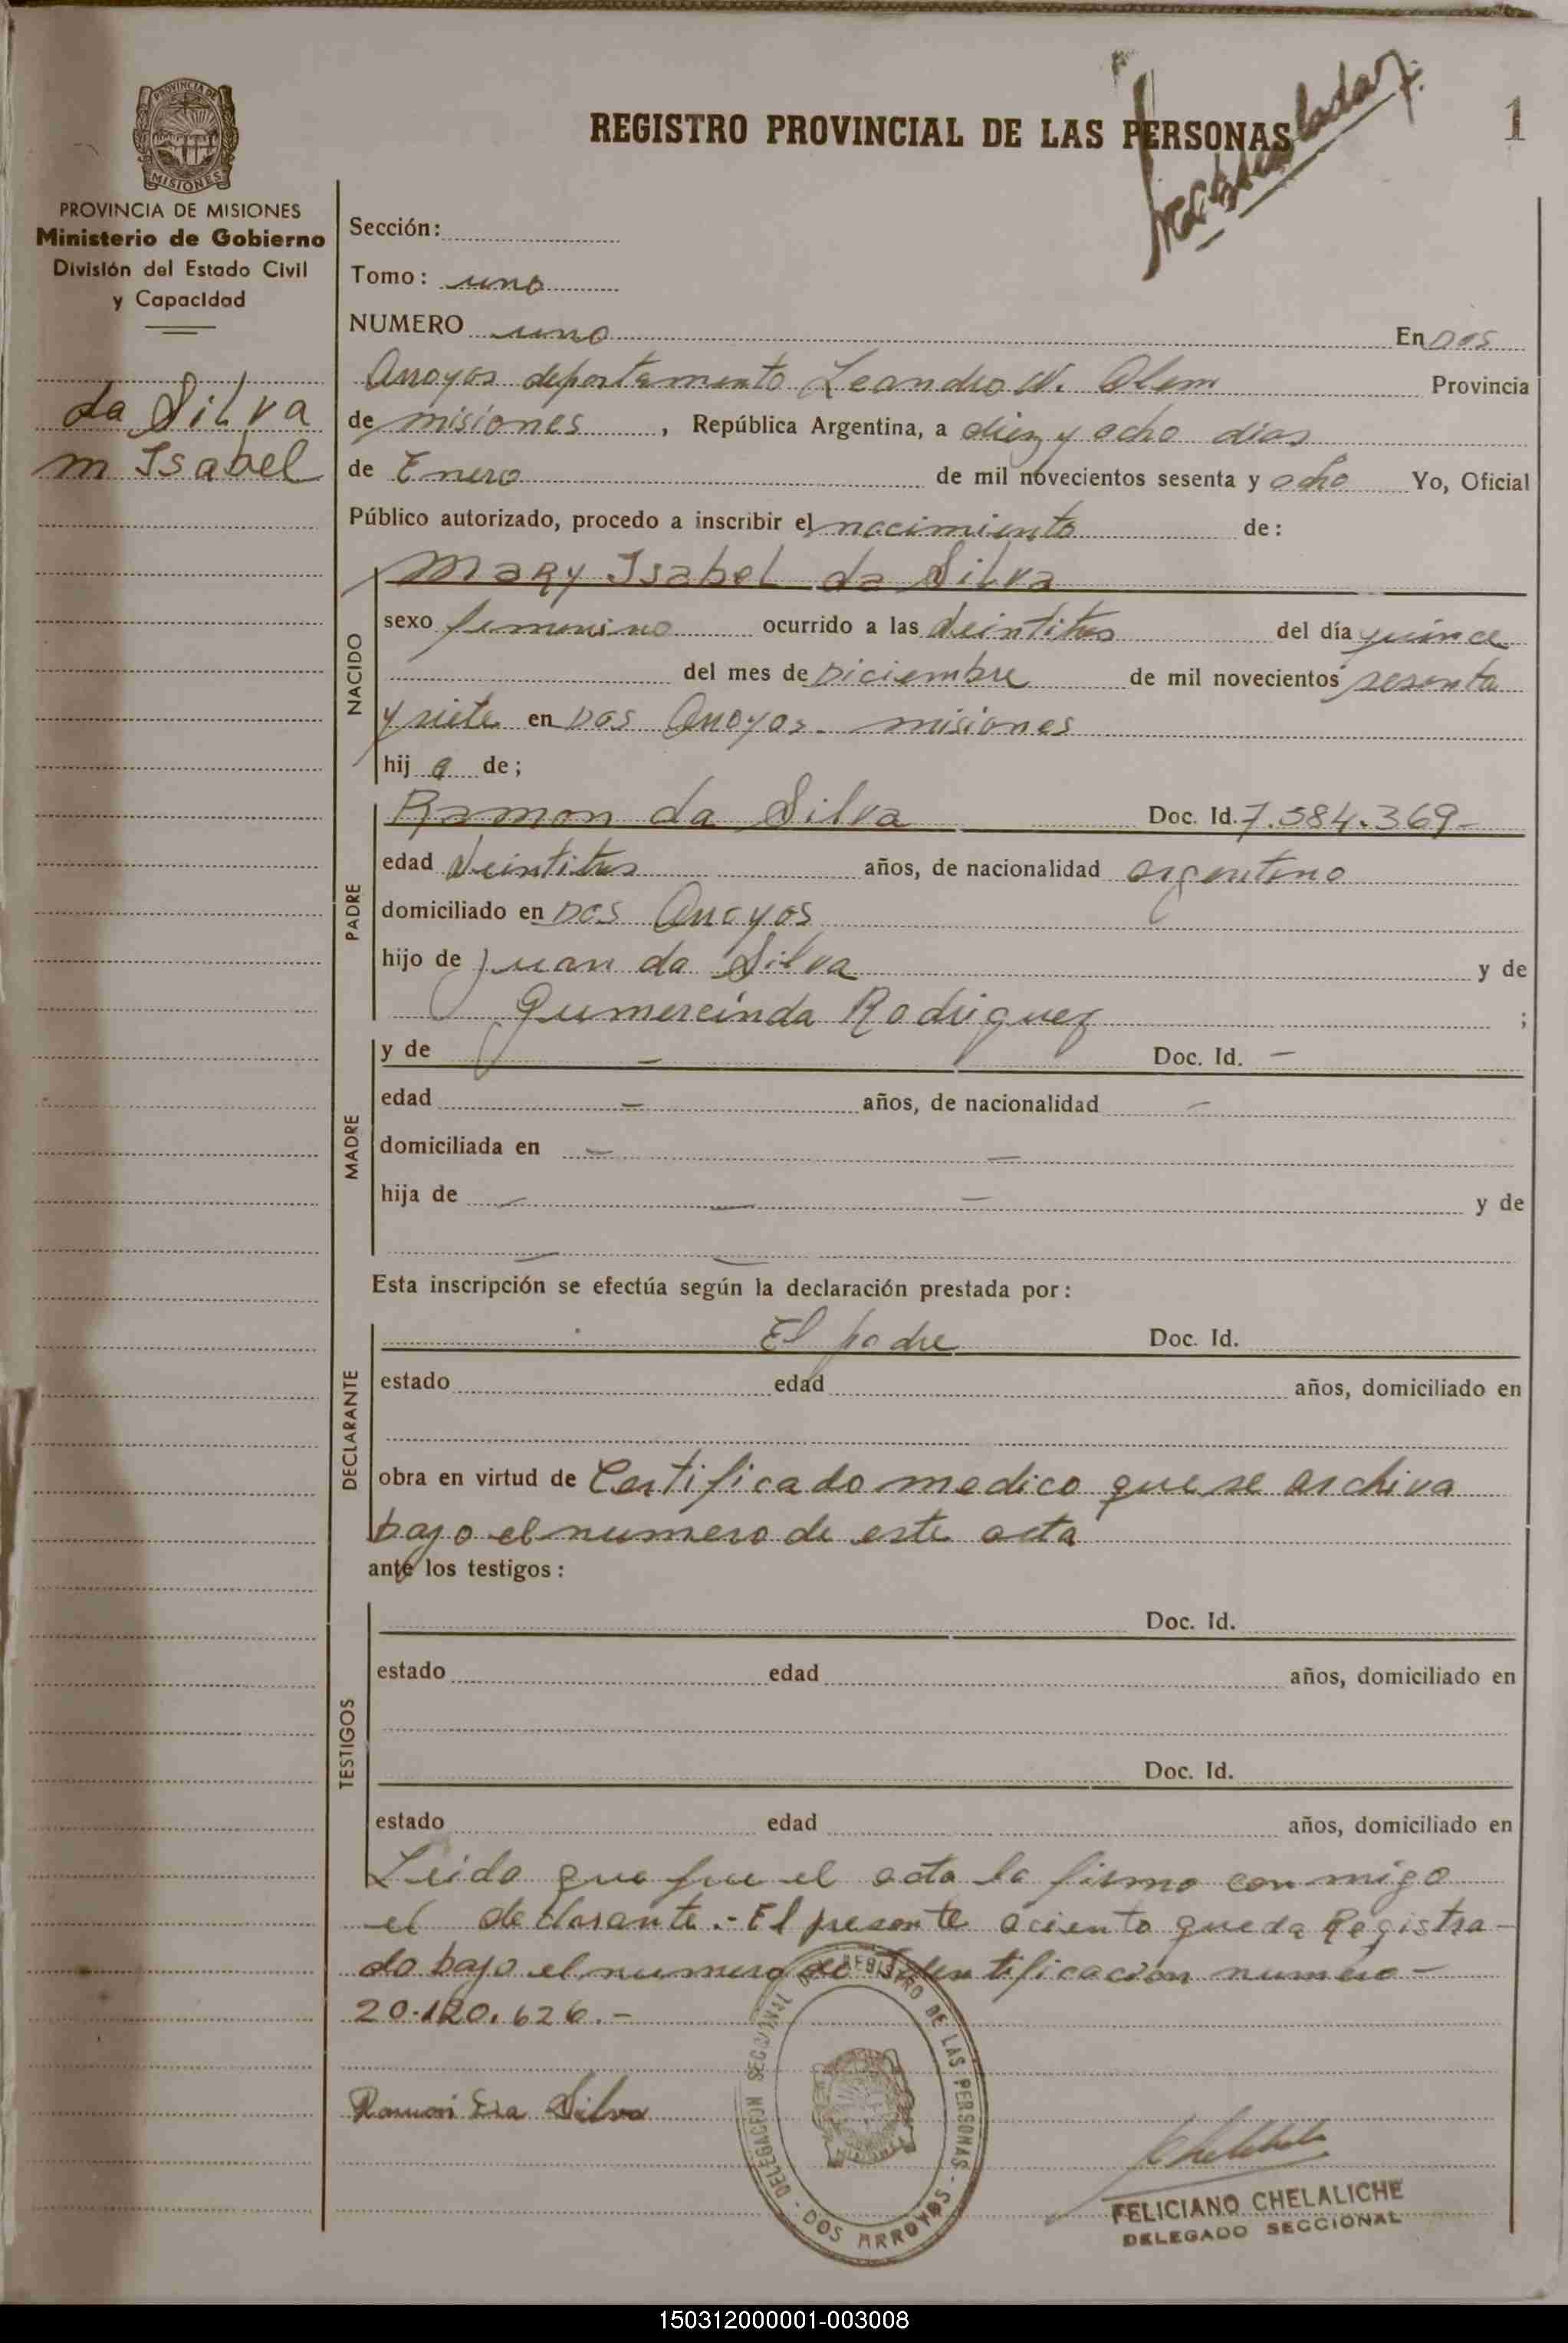 REGISTRO PROVINCIAL DE LAS PERSONAS
1
PROVINCIA DE MISIONES
PROVINCIA DE MISIONES
Ministerio de Gobierno
División del Estado Civil
y Capacidad
da Silva
m Isabel
Sección:
Tomo: uno
NUMERO uno En Dos
Arroyos departamento Leandro N. Alem Provincia
de misiones, República Argentina, a diez y ocho dias
de Enero de mil novecientos sesenta y ocho Yo, Oficial
Público autorizado, procedo a inscribir el nacimiento de:
Mary Isabel da Silva
NACIDO
sexo femenino ocurrido a las veintitres del día quince
del mes de Diciembre de mil novecientos sesenta
y siete en Dos Arroyos - misiones
hij a de;
PADRE
Ramon da Silva Doc. Id. 7.584.369-
edad veintitres años, de nacionalidad argentino
domiciliado en Dos Arroyos
hijo de Juan da Silva y de
Gumercinda Rodriguez ;
MADRE
y de - Doc. Id. -
edad - años, de nacionalidad -
domiciliada en - -
hija de - - - y de
- -
Esta inscripción se efectúa según la declaración prestada por:
DECLARANTE
El padre Doc. Id.
estado edad años, domiciliado en
obra en virtud de Certificado medico que se archiva
bajo el numero de este acta
ante los testigos:
TESTIGOS
Doc. Id.
estado edad años, domiciliado en
Doc. Id.
estado edad años, domiciliado en
Leida que fue el acta la firma con migo
el declarante.- El presente aciento queda Registra-
do bajo el numero de Identificacion numero-
20.120.626.-
Ramon Da Silva
DELEGACION SECCIONAL DEL REGISTRO DE LAS PERSONAS - DOS ARROYOS -
FELICIANO CHELALICHE
DELEGADO SECCIONAL
150312000001-003008